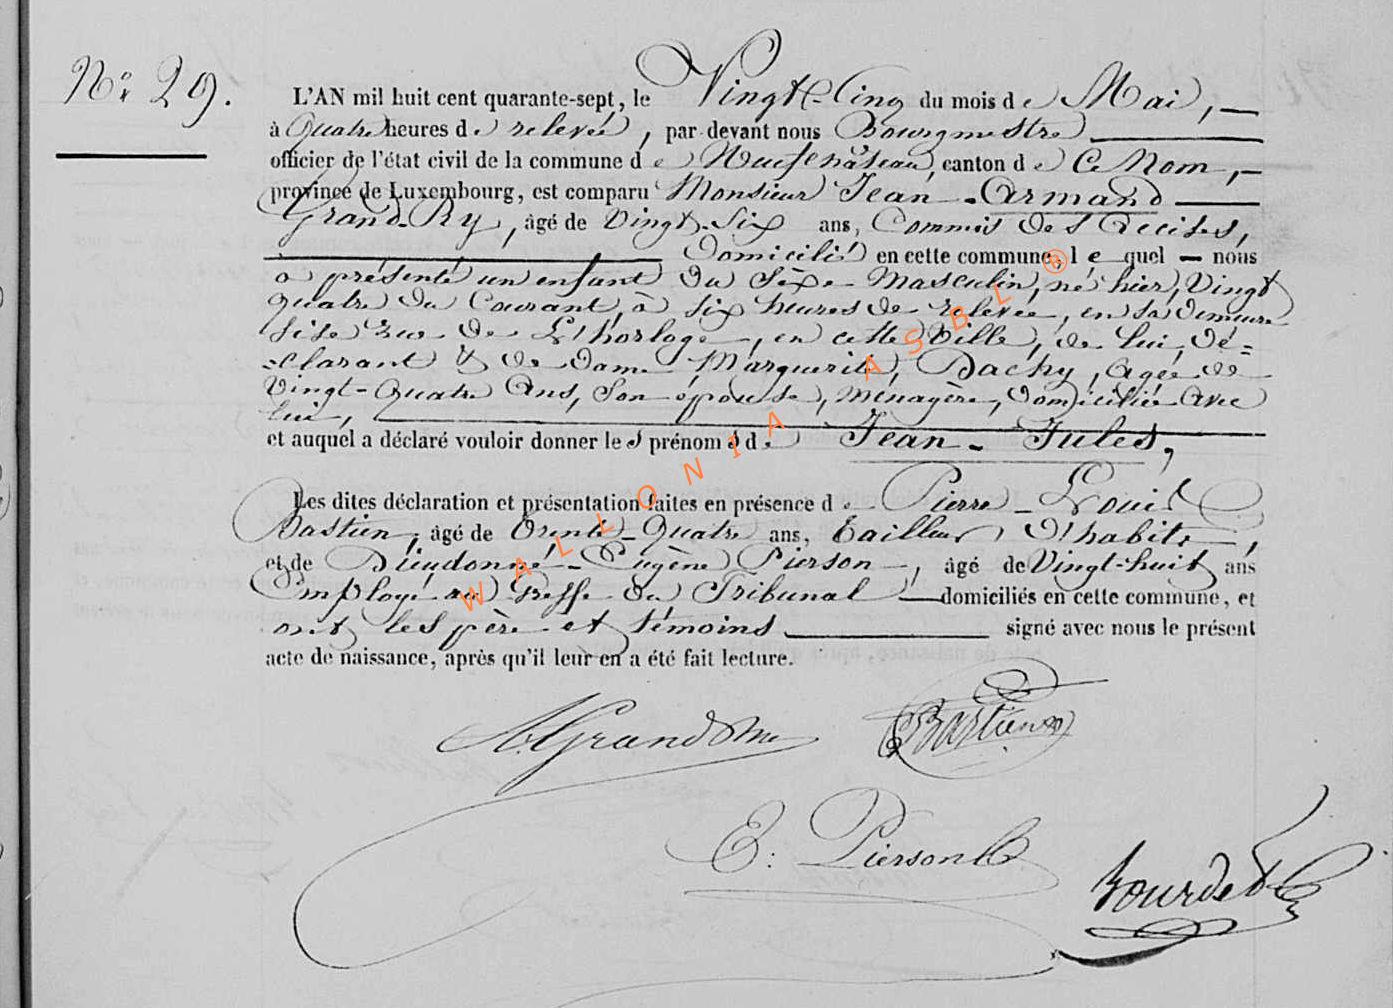 N° 29.
L'AN mil huit cent quarante-sept, le Vingt-Cinq du mois de Mai,
à Quatre heures de relevée, par devant nous Bourgmestre
officier de l'état civil de la commune de Neufchâteau, canton de Ce Nom,
province de Luxembourg, est comparu Monsieur Jean-Armand
Grand-Ry, âgé de Vingt-Six ans, Commis des accises,
Domicilié en cette commune, lequel nous
a présenté un enfant du Sèxe Masculin, né hier, Vingt
quatre du Courant, à six heures de relevée, en sa demeure
sise rue de L'horloge, en cette Ville, de lui, dé=
=clarant & de dame Marguerite Dachy, agée de
Vingt-quatre ans, son épouse, ménagère, domiciliée avec
lui,
et auquel a déclaré vouloir donner les prénoms de Jean-Jules,
Les dites déclaration et présentation faites en présence de Pierre-Louis
Bastien, âgé de Trente-Quatre ans, Tailleur d'habits,
et de Dieudonné-Eugène Pierson, âgé de Vingt-huit ans
Employé au Greffe du Tribunal domiciliés en cette commune, et
ont les père et témoins signé avec nous le présent
acte de naissance, après qu'il leur en a été fait lecture.
Bastien
E: Pierson
Bourdet
WALLONIA ASBL ®